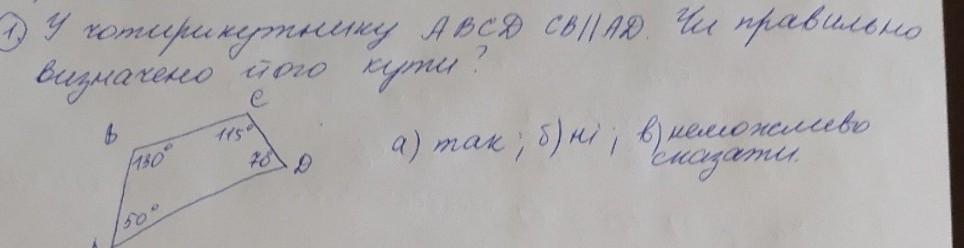 1. У чотирикутнику ABCD CB||AD. Чи правильно
визначено його кути?
C
B
115°
130°
70
D
50°
A
а) так; б) ні; в) неможливо
сказати.